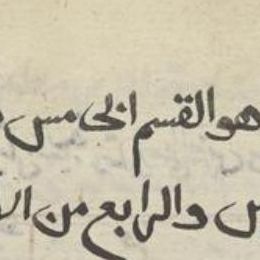 هو القسم الخامس
والرابع من